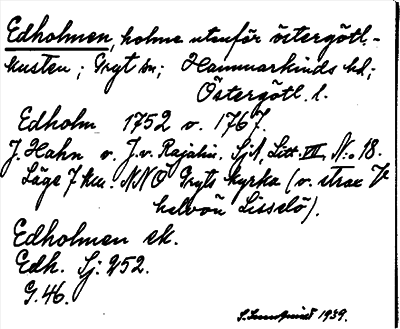 Edholmen, holme utanför östergötl.-
kusten; Gryt sn; Hammarkinds hd;
Östergötl. l.
Edholm 1752 o. 1767.
J. Hahn o. J. v. Rajalin. SjA, Litt. VII, N:o 18.
Läge 7 km. NNO Gryts kyrka (o. strax V
halvön Lisselö).
Edholmen ek.
Edh. Sj: 252.
G.46.
1939.